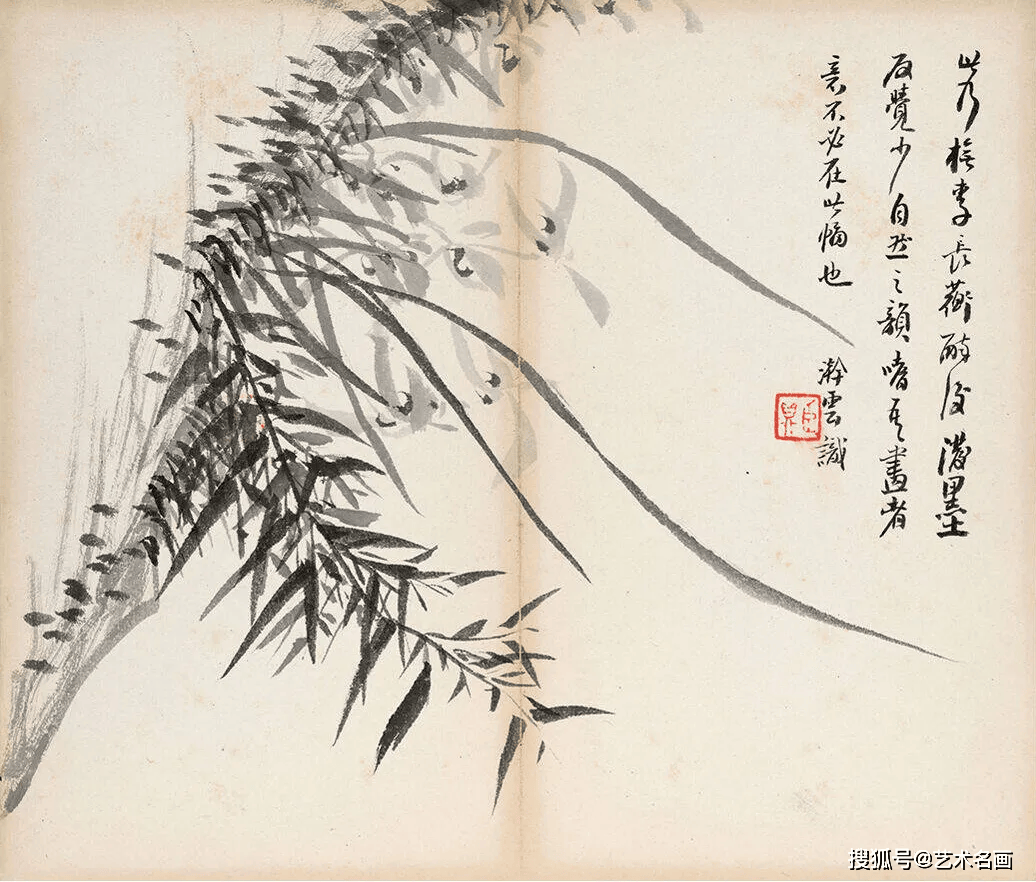 此乃李長蘅醉後潑墨
反覺少自然之韻嗜其畫者
意不必在此幅也
雲識
搜狐号@艺术名画